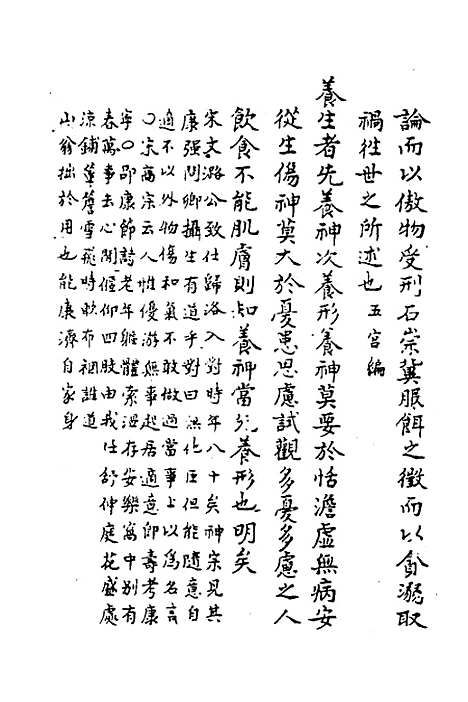 論而以傲物受刑石崇冀服餌之徴而以貪溺取
禍往世之所述也五宫編
養生者先養神次養形養神莫要於恬澹虛無病安
從生傷神莫大於憂患思慮試觀多憂多慮之人
飲食不能肌膚則知養神當先養形也明矣
宋文潞公致仕歸洛入對時年八十矣神宗見其
康强問卿攝生有道乎對曰無他臣但能隨意自
適不以外物傷和氣不敢做過當事上以為名言
○宋高宗云人性優游無事起居適意即壽考康
寧○邵康節詩老年軀體索溫存安樂窩中別有
春萬事去心閒偃仰四肢由我任舒伸庭花盛處
涼鋪簟簷雪飛時軟布裀誰道
山翁拙於用也能康濟自家身